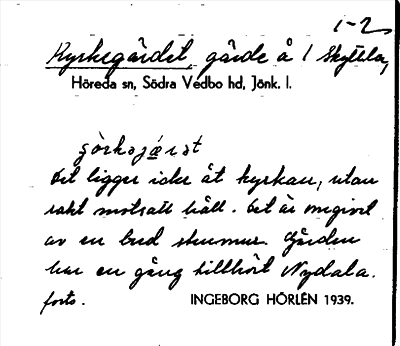 1-2
Kyrkegärdet, gärde å 1 Skyttla,
Höreda sn, Södra Vedbo hd, Jönk. l.
Det ligger icke åt kyrkan, utan
rakt motsatt håll. Det är omgivet
av en bred stenmur. Gården
har en gång tillhört Nydala.
forts.
INGEBORG HÖRLÉN 1939.